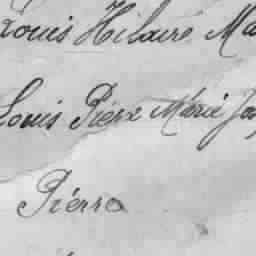 Louis Hilaire Ma
Louis Pierre Marie Jo
Pierre